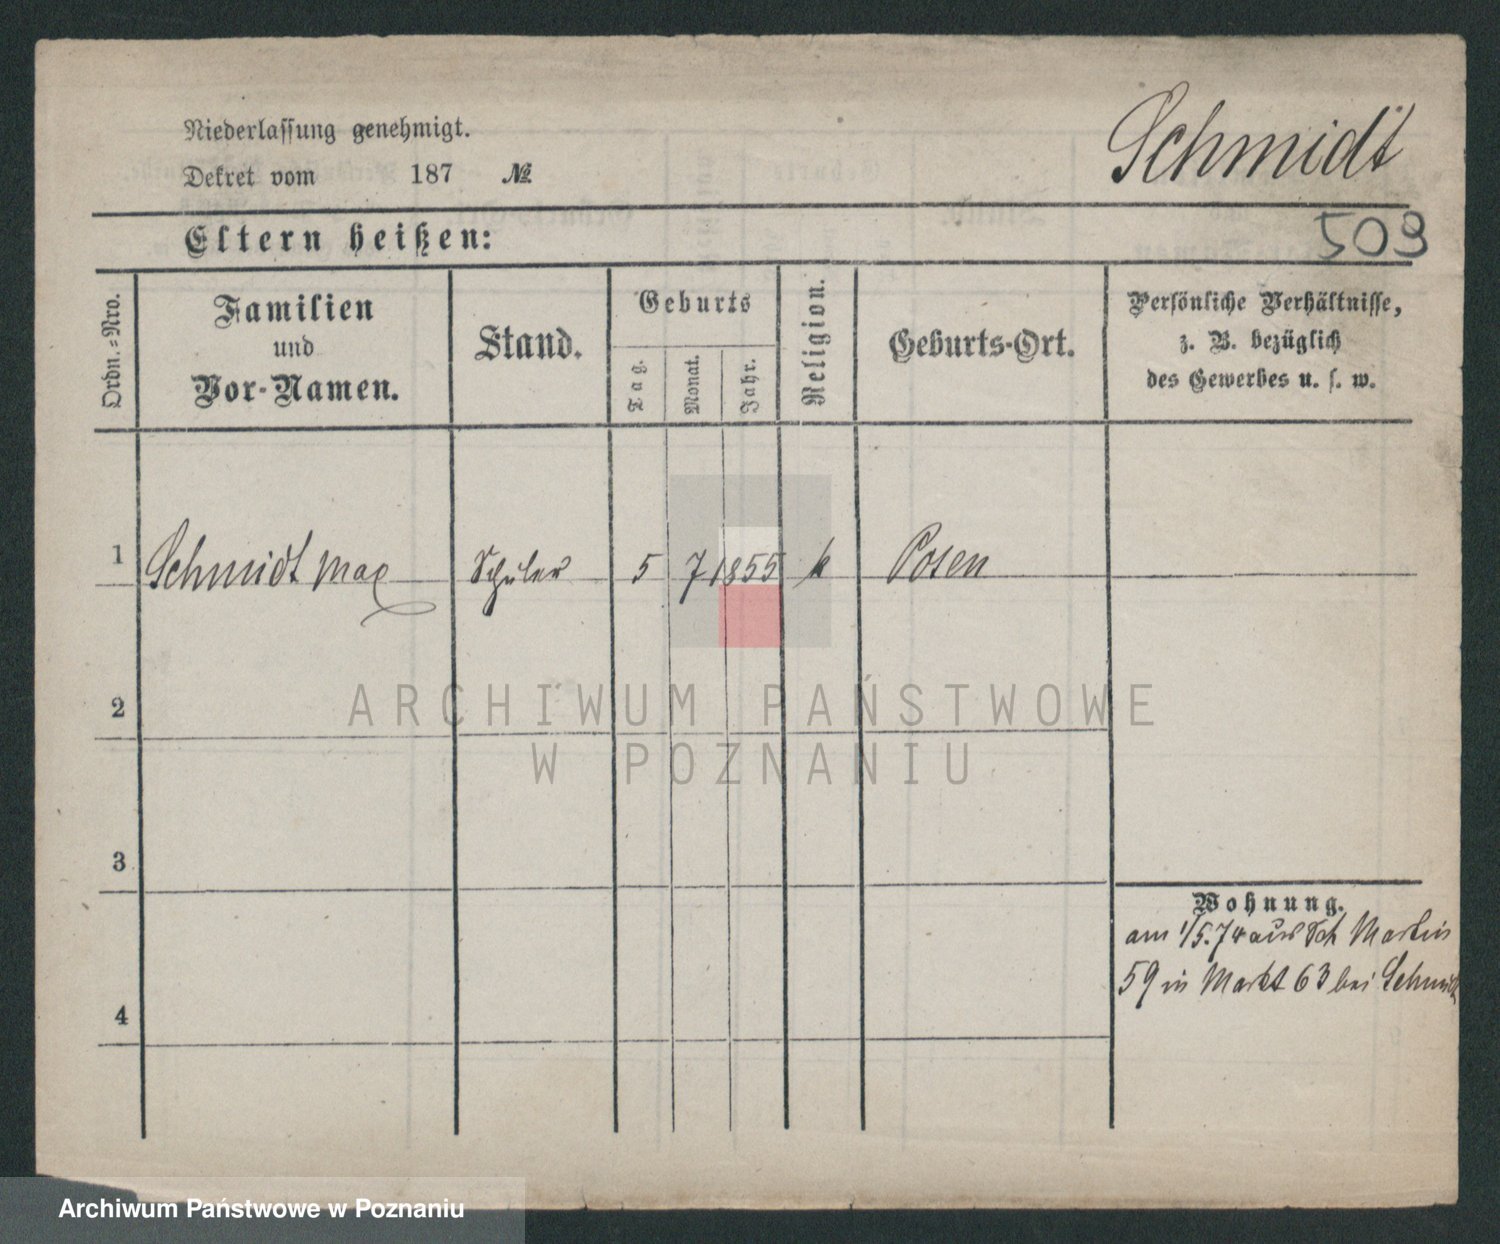 Niederlassung genehmigt.
Schmidt
Dekret vom 187 №
509
Eltern heißen:
Ordn.=Nro.
Familien
und
Vor-Namen.
Stand.
Geburts
Tag.
Monat.
Jahr.
Religion.
Geburts-Ort.
Persönliche Verhältnisse,
z. B. bezüglich
des Gewerbes u. s. w.
1 Schmidt Max Schüler 5 7 1855 k Posen
2
ARCHIWUM PAŃSTWOWE
W POZNANIU
3
Wohnung.
am 1/5.74 aus Sct Martin
59 in Markt 63 bei Schmidt
4
Archiwum Państwowe w Poznaniu